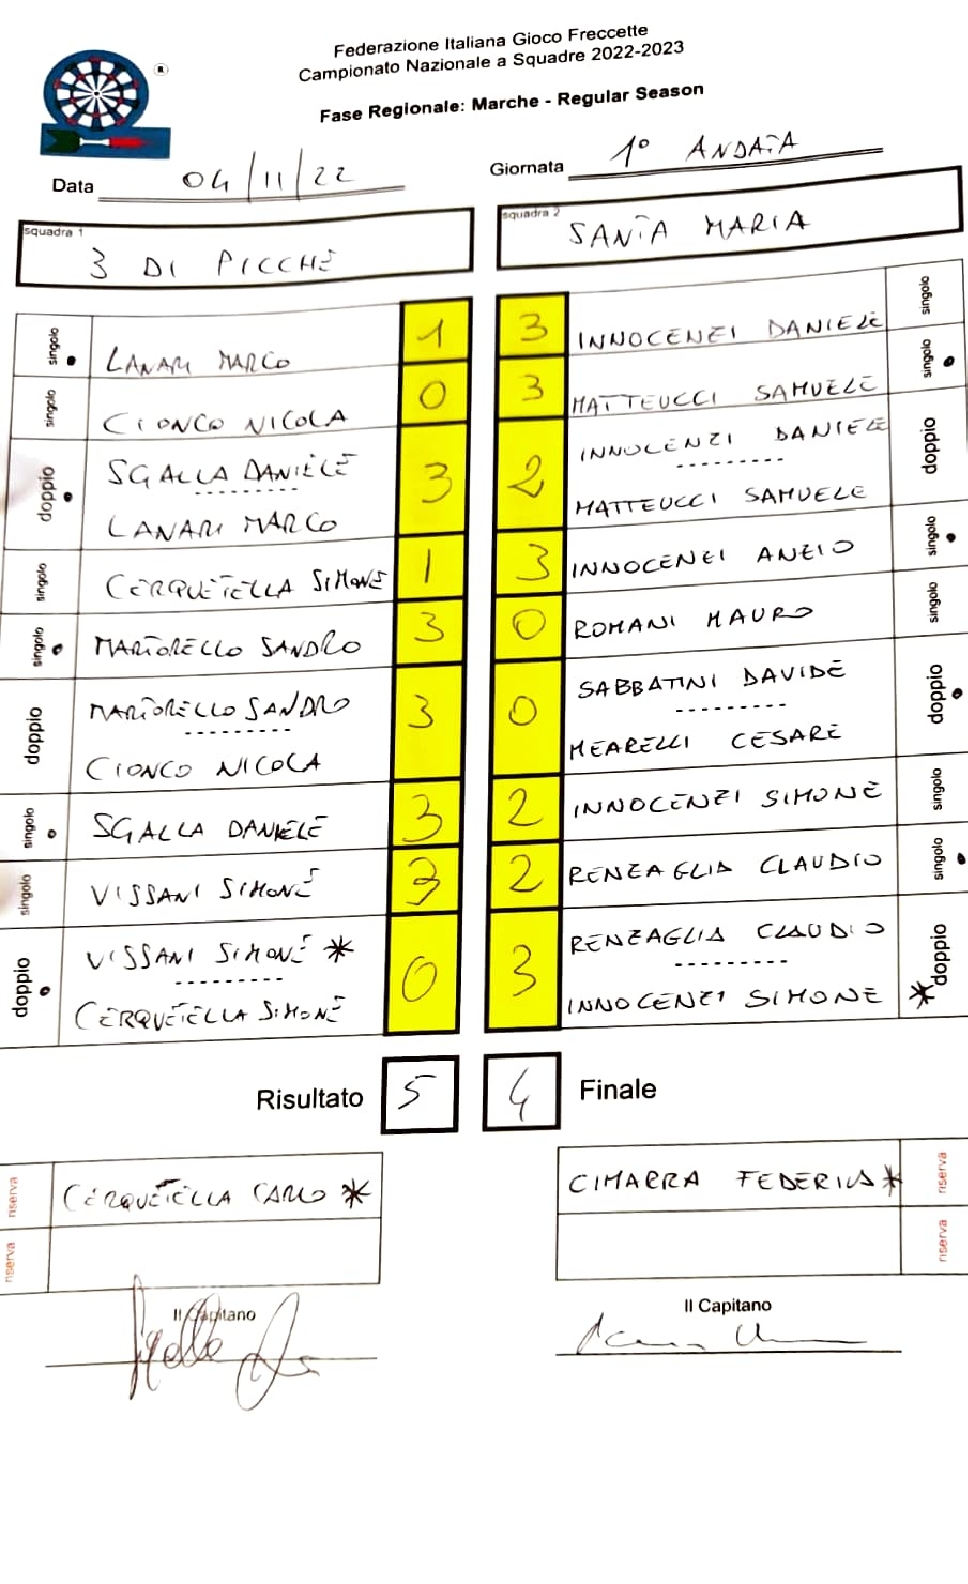 Federazione Italiana Gioco Freccette
Campionato Nazionale a Squadre 2022-2023
Fase Regionale: Marche - Regular Season
Data 04/11/22
Giornata 1° ANDATA
squadra 1
3 DI PICCHE
squadra 2
SANTA MARIA
singolo LANARI MARCO 1 3 INNOCENZI DANIELE singolo
singolo CIONCO NICOLA 0 3 MATTEUCCI SAMUELE singolo
doppio SGALLA DANIELE 3 2 INNOCENZI DANIELE doppio
LANARI MARCO MATTEUCCI SAMUELE
singolo CERQUETELLA SIMONE 1 3 INNOCENZI ANZIO singolo
singolo MARTORELLO SANDRO 3 0 ROMANI MAURO singolo
doppio MARTORELLO SANDRO 3 0 SABBATINI DAVIDE doppio
CIONCO NICOLA MEARELLI CESARE
singolo SGALLA DANIELE 3 2 INNOCENZI SIMONE singolo
singolo VISSANI SIMONE 3 2 RENZAGLIA CLAUDIO singolo
doppio VISSANI SIMONE * 0 3 RENZAGLIA CLAUDIO doppio
CERQUETELLA SIMONE INNOCENZI SIMONE *
Risultato 5 4 Finale
riserva CERQUETELLA CARLO * CIMARRA FEDERICA * riserva
riserva riserva
Il Capitano Il Capitano